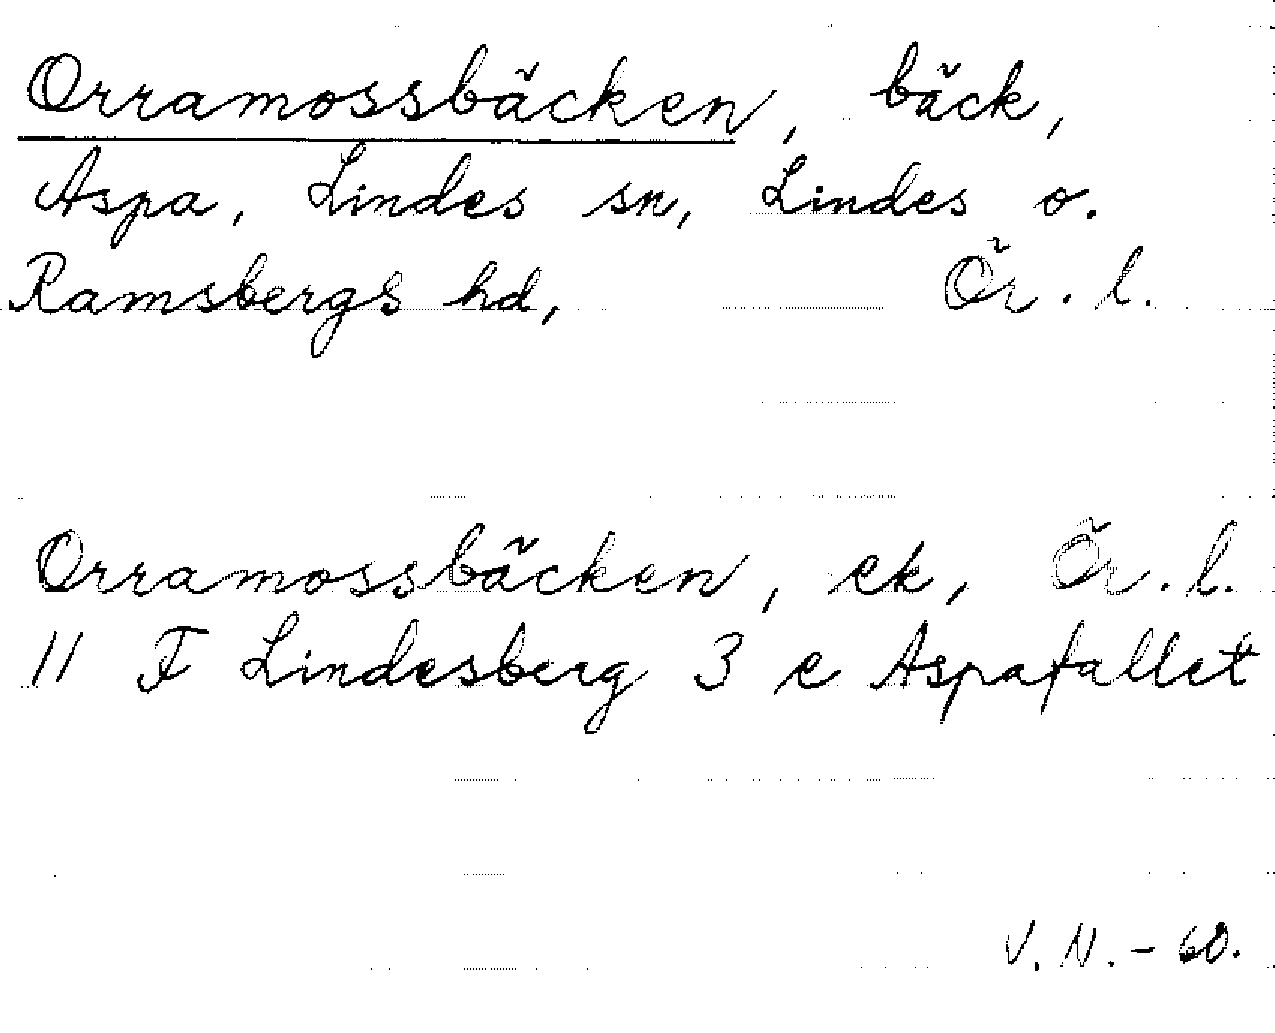 Orramossbäcken, bäck,
Aspa, Lindes sn, Lindes o.
Ramsbergs hd, Ör. l.
Orramossbäcken, ek, Ör. l.
11 F Lindesberg 3 e Aspafallet
V. N. - 60.